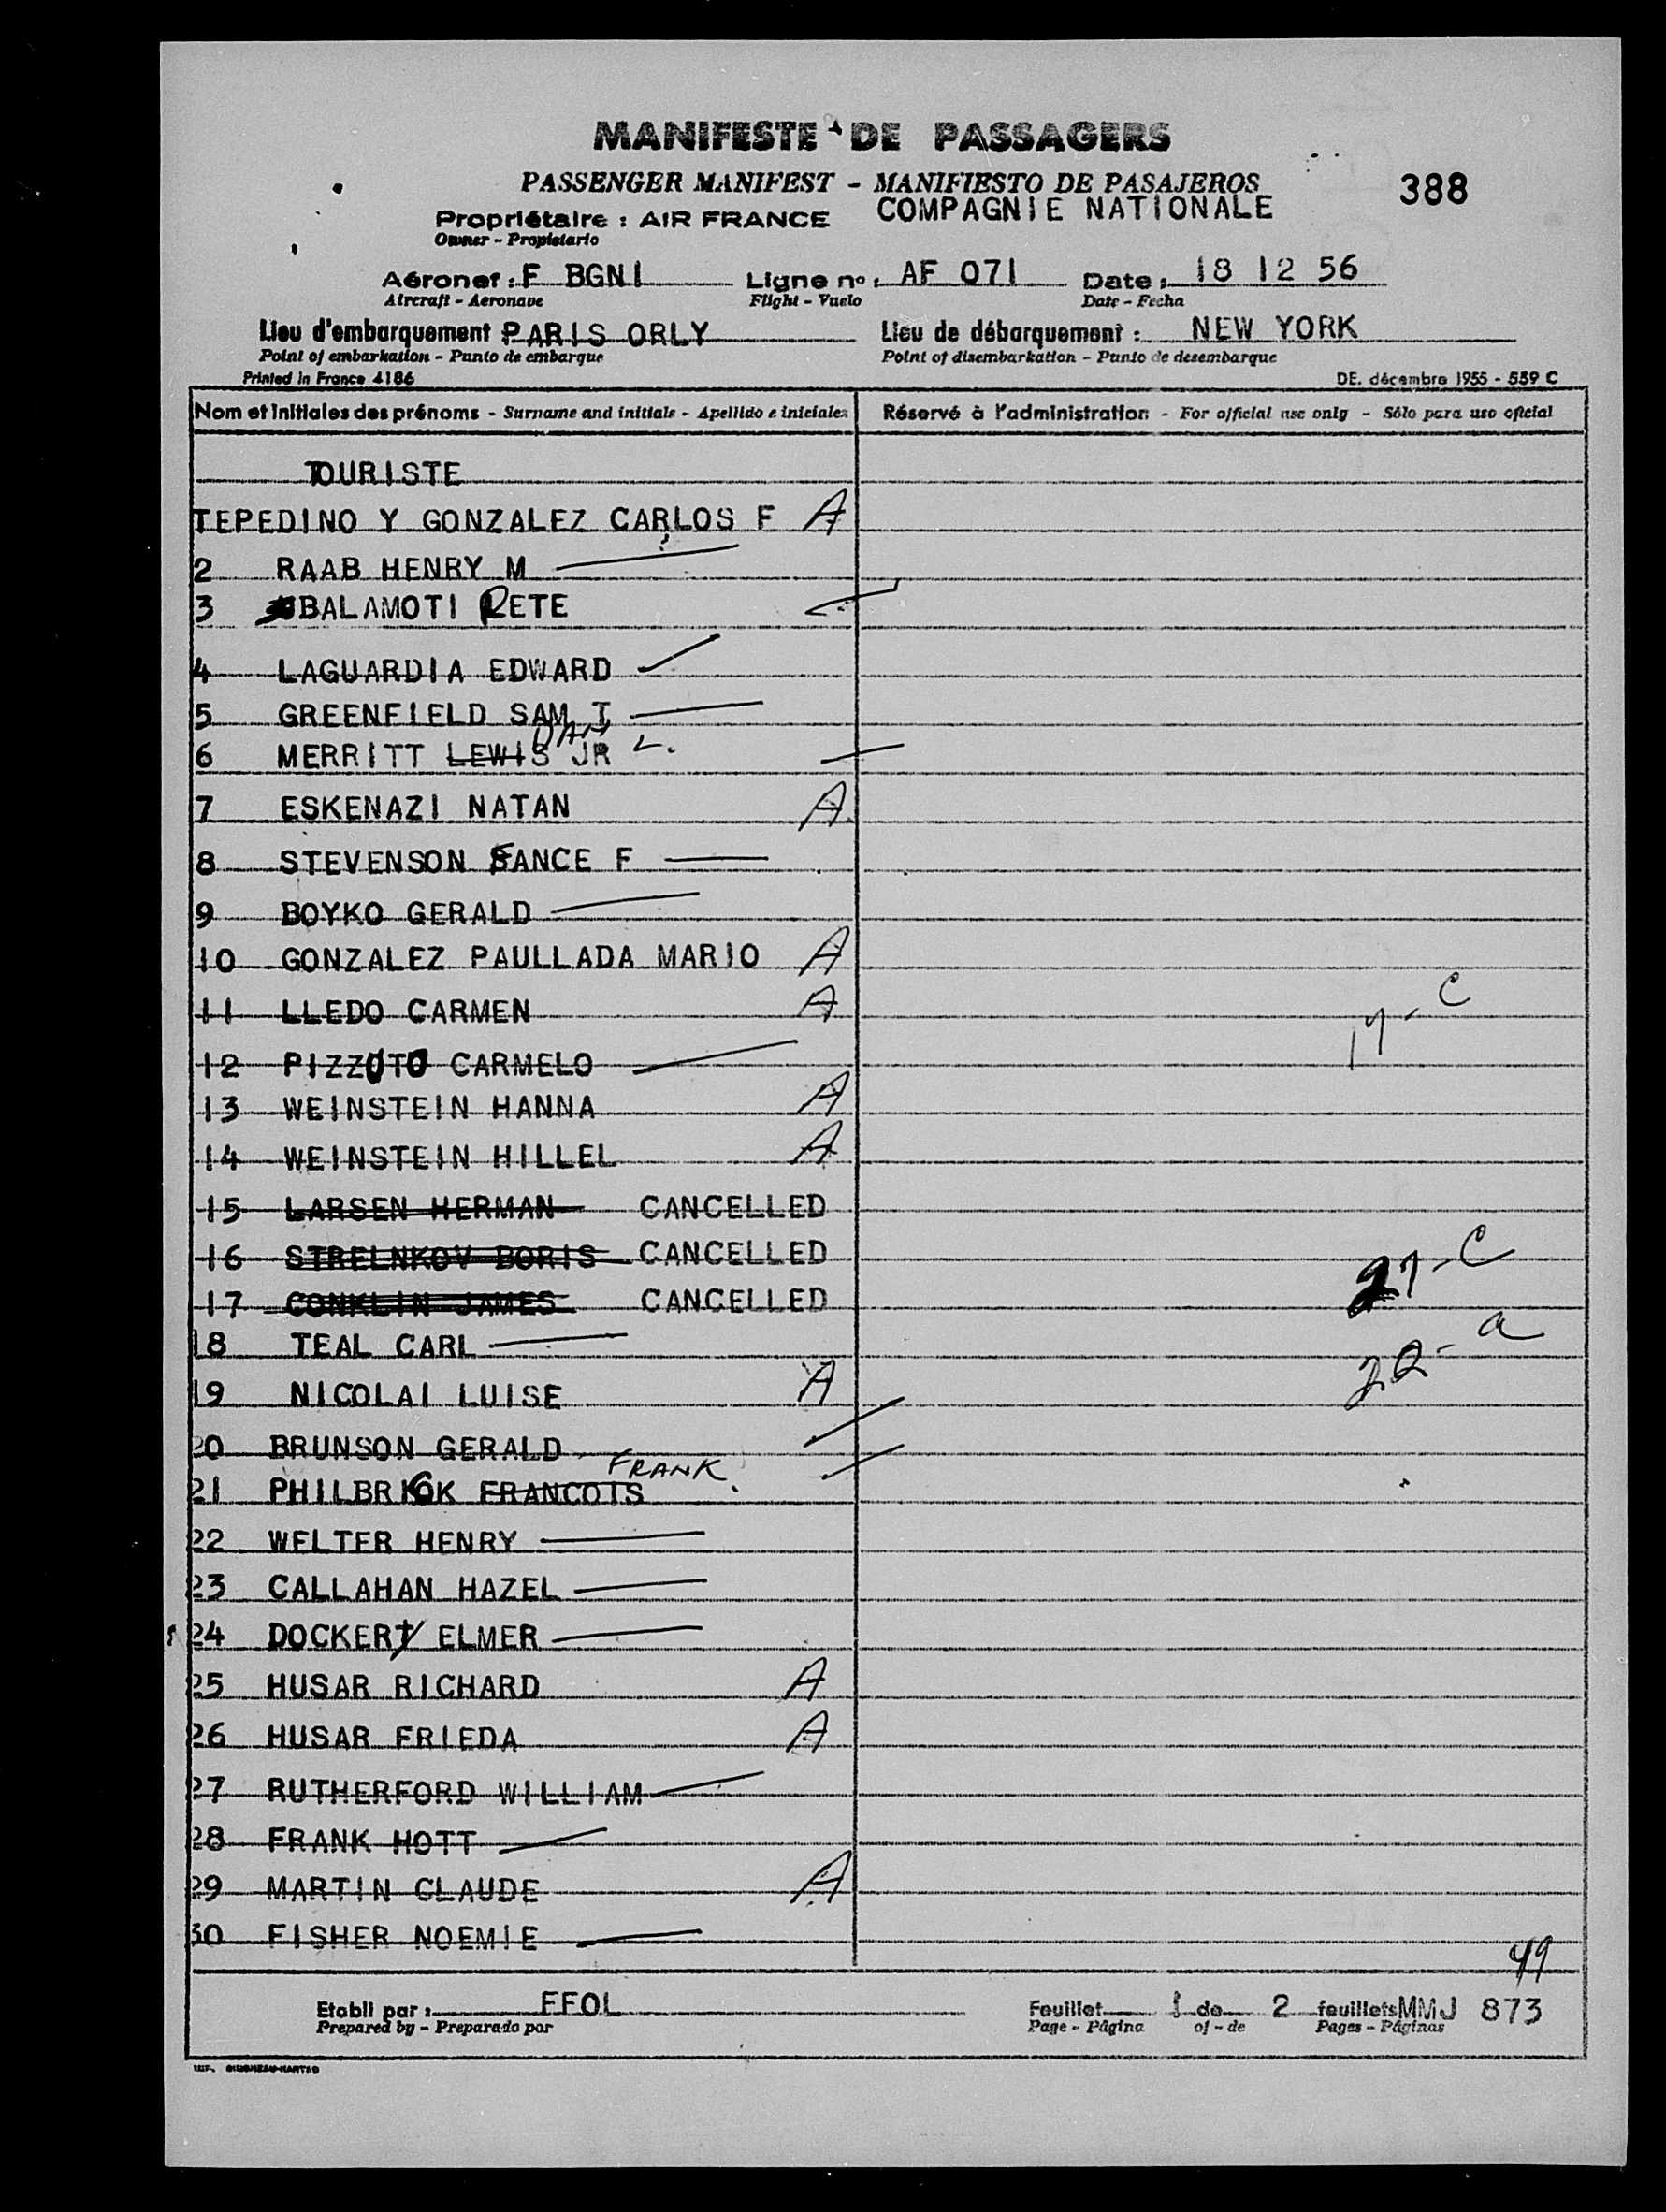 MANIFESTE DE PASSAGERS
PASSENGER MANIFEST - MANIFIESTO DE PASAJEROS
388
Propriétaire : AIR FRANCE COMPAGNIE NATIONALE
Owner - Propietario
Aéronef : F BGNI Ligne no : AF 071 Date : 18 12 56
Aircraft - Aeronave Flight - Vuelo Date - Fecha
Lieu d'embarquement PARIS ORLY Lieu de débarquement : NEW YORK
Point of embarkation - Punto de embarque Point of disembarkation - Punto de desembarque
Printed in France 4186 DE. décembre 1955 - 559 C
Nom et Initiales des prénoms - Surname and initials - Apellido e iniciales Réservé à l'administration - For official use only - Sólo para uso oficial
TOURISTE
TEPEDINO Y GONZALEZ CARLOS F A
2 RAAB HENRY M
3 BALAMOTI RETE
4 LAGUARDIA EDWARD
5 GREENFIELD SAM T
DAN
6 MERRITT LEWIS JR L.
7 ESKENAZI NATAN A
8 STEVENSON FANCE F
9 BOYKO GERALD
10 GONZALEZ PAULLADA MARIO A
11 LLEDO CARMEN A
17-C
12 PIZZOTO CARMELO
13 WEINSTEIN HANNA A
14 WEINSTEIN HILLEL A
15 LARSEN HERMAN CANCELLED
16 STRELNKOV BORIS CANCELLED
27-C
17 CONKLIN JAMES CANCELLED
18 TEAL CARL
22-a
19 NICOLAI LUISE A
20 BRUNSON GERALD
FRANK
21 PHILBRICK FRANCOIS
22 WELTER HENRY
23 CALLAHAN HAZEL
24 DOCKERY ELMER
25 HUSAR RICHARD A
26 HUSAR FRIEDA A
27 RUTHERFORD WILLIAM
28 FRANK HOTT
29 MARTIN CLAUDE A
30 FISHER NOEMIE
49
Etabli par : FFOL Feuillet 1 de 2 feuillets MMJ 873
Prepared by - Preparado por Page - Página of - de Pages - Páginas